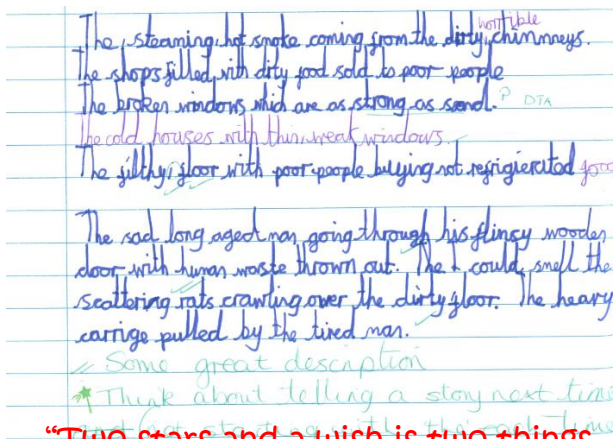 horrible
The, steaming, hot smoke coming from the dirty, chimnneys.
The shops filled with dity food sold to poor people
The broken windows which are as strong as sand. ? DTA
The cold houses with thin, weak windows.
The filthy, floor with poor people buying not refrigierated food
The sad long aged man going through his flincy wooden
door with human waste thrown out. The I could smell the
scattering rats crawling over the dirty floor. The heavy
carrige pulled by the tired man.
Some great description
Think about telling a story next time
"Two stars and a wish is two things